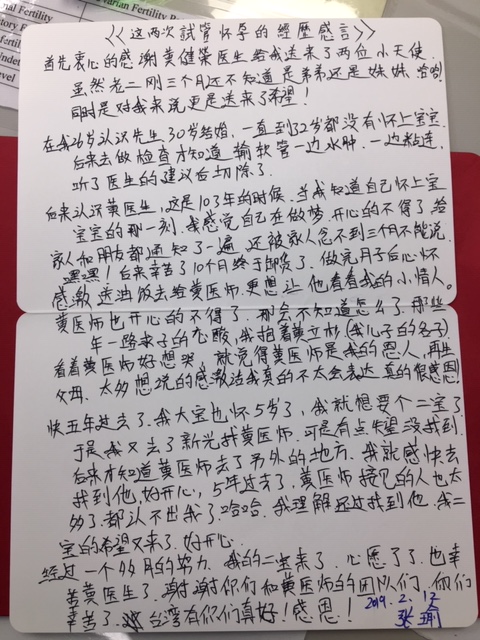 nal Fertility
varian Fertility P
tory Fertility
ndet
evel
<<这两次試管怀孕的經歷感言>>
首先衷心的感谢黄健榮医生给我送来了两位小天使.
虽然老二刚三个月还不知道是弟弟还是妹妹.哈哈
同时是对我来说更是送来了希望!
在我26岁认识先生30岁结婚,一直到32岁都没有怀上宝宝.
后来去做检查才知道输软管一边水肿.一边粘连.
听了医生的建议后切除了.
后来认识黄医生,这是103年的时候.当我知道自己怀上宝
宝宝的那一刻.我感觉自己在做梦.开心的不得了给
家人和朋友都通知了一遍.还被家人念不到三个月不能说.
嘿嘿!后来辛苦了10个月终于卸货了.做完月子后心怀
感激送油饭去给黄医师.更想让他看看我的小情人.
黄医师也开心的不得了.那会不知道怎么了.那些
年一路来子的心酸,我抱着黄立林(我儿子的名子)
看着黄医师好想哭.就觉得黄医师是我的恩人,再生
父母.太多想说的感激话我真的不太会表达.真的很感恩!
快五年过去了.我大宝也怀5岁了,我就想要个二宝了
于是我又去了新光找黄医师.可是有点失望没找到.
后来才知道黄医师去了另外的地方.我就感快去
找到他.好开心,5年过去了.黄医师接见的人也太
多了.都认不出我了.哈哈.我理解.还过找到他.我二
宝的希望又来了.好开心.
经过一个多月的努力.我的二宝来了.心愿了了.也辛
苦黄医生了.谢谢你们和黄医师的团队们.你们
辛苦了.台湾有你们真好!感恩!
2019.2.12
张瑜